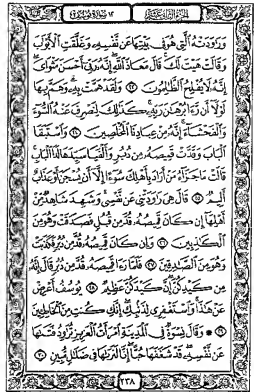 الجزء الثاني عشر ١٢ سورة يوسف
وَرَٰوَدَتْهُ ٱلَّتِي هُوَ فِي بَيْتِهَا عَن نَّفْسِهِۦ وَغَلَّقَتِ ٱلْأَبْوَٰبَ
وَقَالَتْ هَيْتَ لَكَ ۚ قَالَ مَعَاذَ ٱللَّهِ ۖ إِنَّهُۥ رَبِّيٓ أَحْسَنَ مَثْوَايَ ۖ
إِنَّهُۥ لَا يُفْلِحُ ٱلظَّٰلِمُونَ ٢٣ وَلَقَدْ هَمَّتْ بِهِۦ ۖ وَهَمَّ بِهَا
لَوْلَآ أَن رَّءَا بُرْهَٰنَ رَبِّهِۦ ۚ كَذَٰلِكَ لِنَصْرِفَ عَنْهُ ٱلسُّوٓءَ
وَٱلْفَحْشَآءَ ۚ إِنَّهُۥ مِنْ عِبَادِنَا ٱلْمُخْلَصِينَ ٢٤ وَٱسْتَبَقَا
ٱلْبَابَ وَقَدَّتْ قَمِيصَهُۥ مِن دُبُرٍ وَأَلْفَيَا سَيِّدَهَا لَدَا ٱلْبَابِ ۚ
قَالَتْ مَا جَزَآءُ مَنْ أَرَادَ بِأَهْلِكَ سُوٓءًا إِلَّآ أَن يُسْجَنَ أَوْ عَذَابٌ
أَلِيمٌ ٢٥ قَالَ هِيَ رَٰوَدَتْنِي عَن نَّفْسِي ۚ وَشَهِدَ شَاهِدٌ مِّنْ
أَهْلِهَآ إِن كَانَ قَمِيصُهُۥ قُدَّ مِن قُبُلٍ فَصَدَقَتْ وَهُوَ مِنَ
ٱلْكَٰذِبِينَ ٢٦ وَإِن كَانَ قَمِيصُهُۥ قُدَّ مِن دُبُرٍ فَكَذَبَتْ
وَهُوَ مِنَ ٱلصَّٰدِقِينَ ٢٧ فَلَمَّا رَءَا قَمِيصَهُۥ قُدَّ مِن دُبُرٍ قَالَ إِنَّهُۥ
مِن كَيْدِكُنَّ ۖ إِنَّ كَيْدَكُنَّ عَظِيمٌ ٢٨ يُوسُفُ أَعْرِضْ
عَنْ هَٰذَا ۚ وَٱسْتَغْفِرِي لِذَنۢبِكِ ۖ إِنَّكِ كُنتِ مِنَ ٱلْخَاطِـِٔينَ
٢٩ وَقَالَ نِسْوَةٌ فِي ٱلْمَدِينَةِ ٱمْرَأَتُ ٱلْعَزِيزِ تُرَٰوِدُ فَتَىٰهَا
عَن نَّفْسِهِۦ ۖ قَدْ شَغَفَهَا حُبًّا ۖ إِنَّا لَنَرَىٰهَا فِي ضَلَٰلٍ مُّبِينٍ ٣٠
٢٣٨